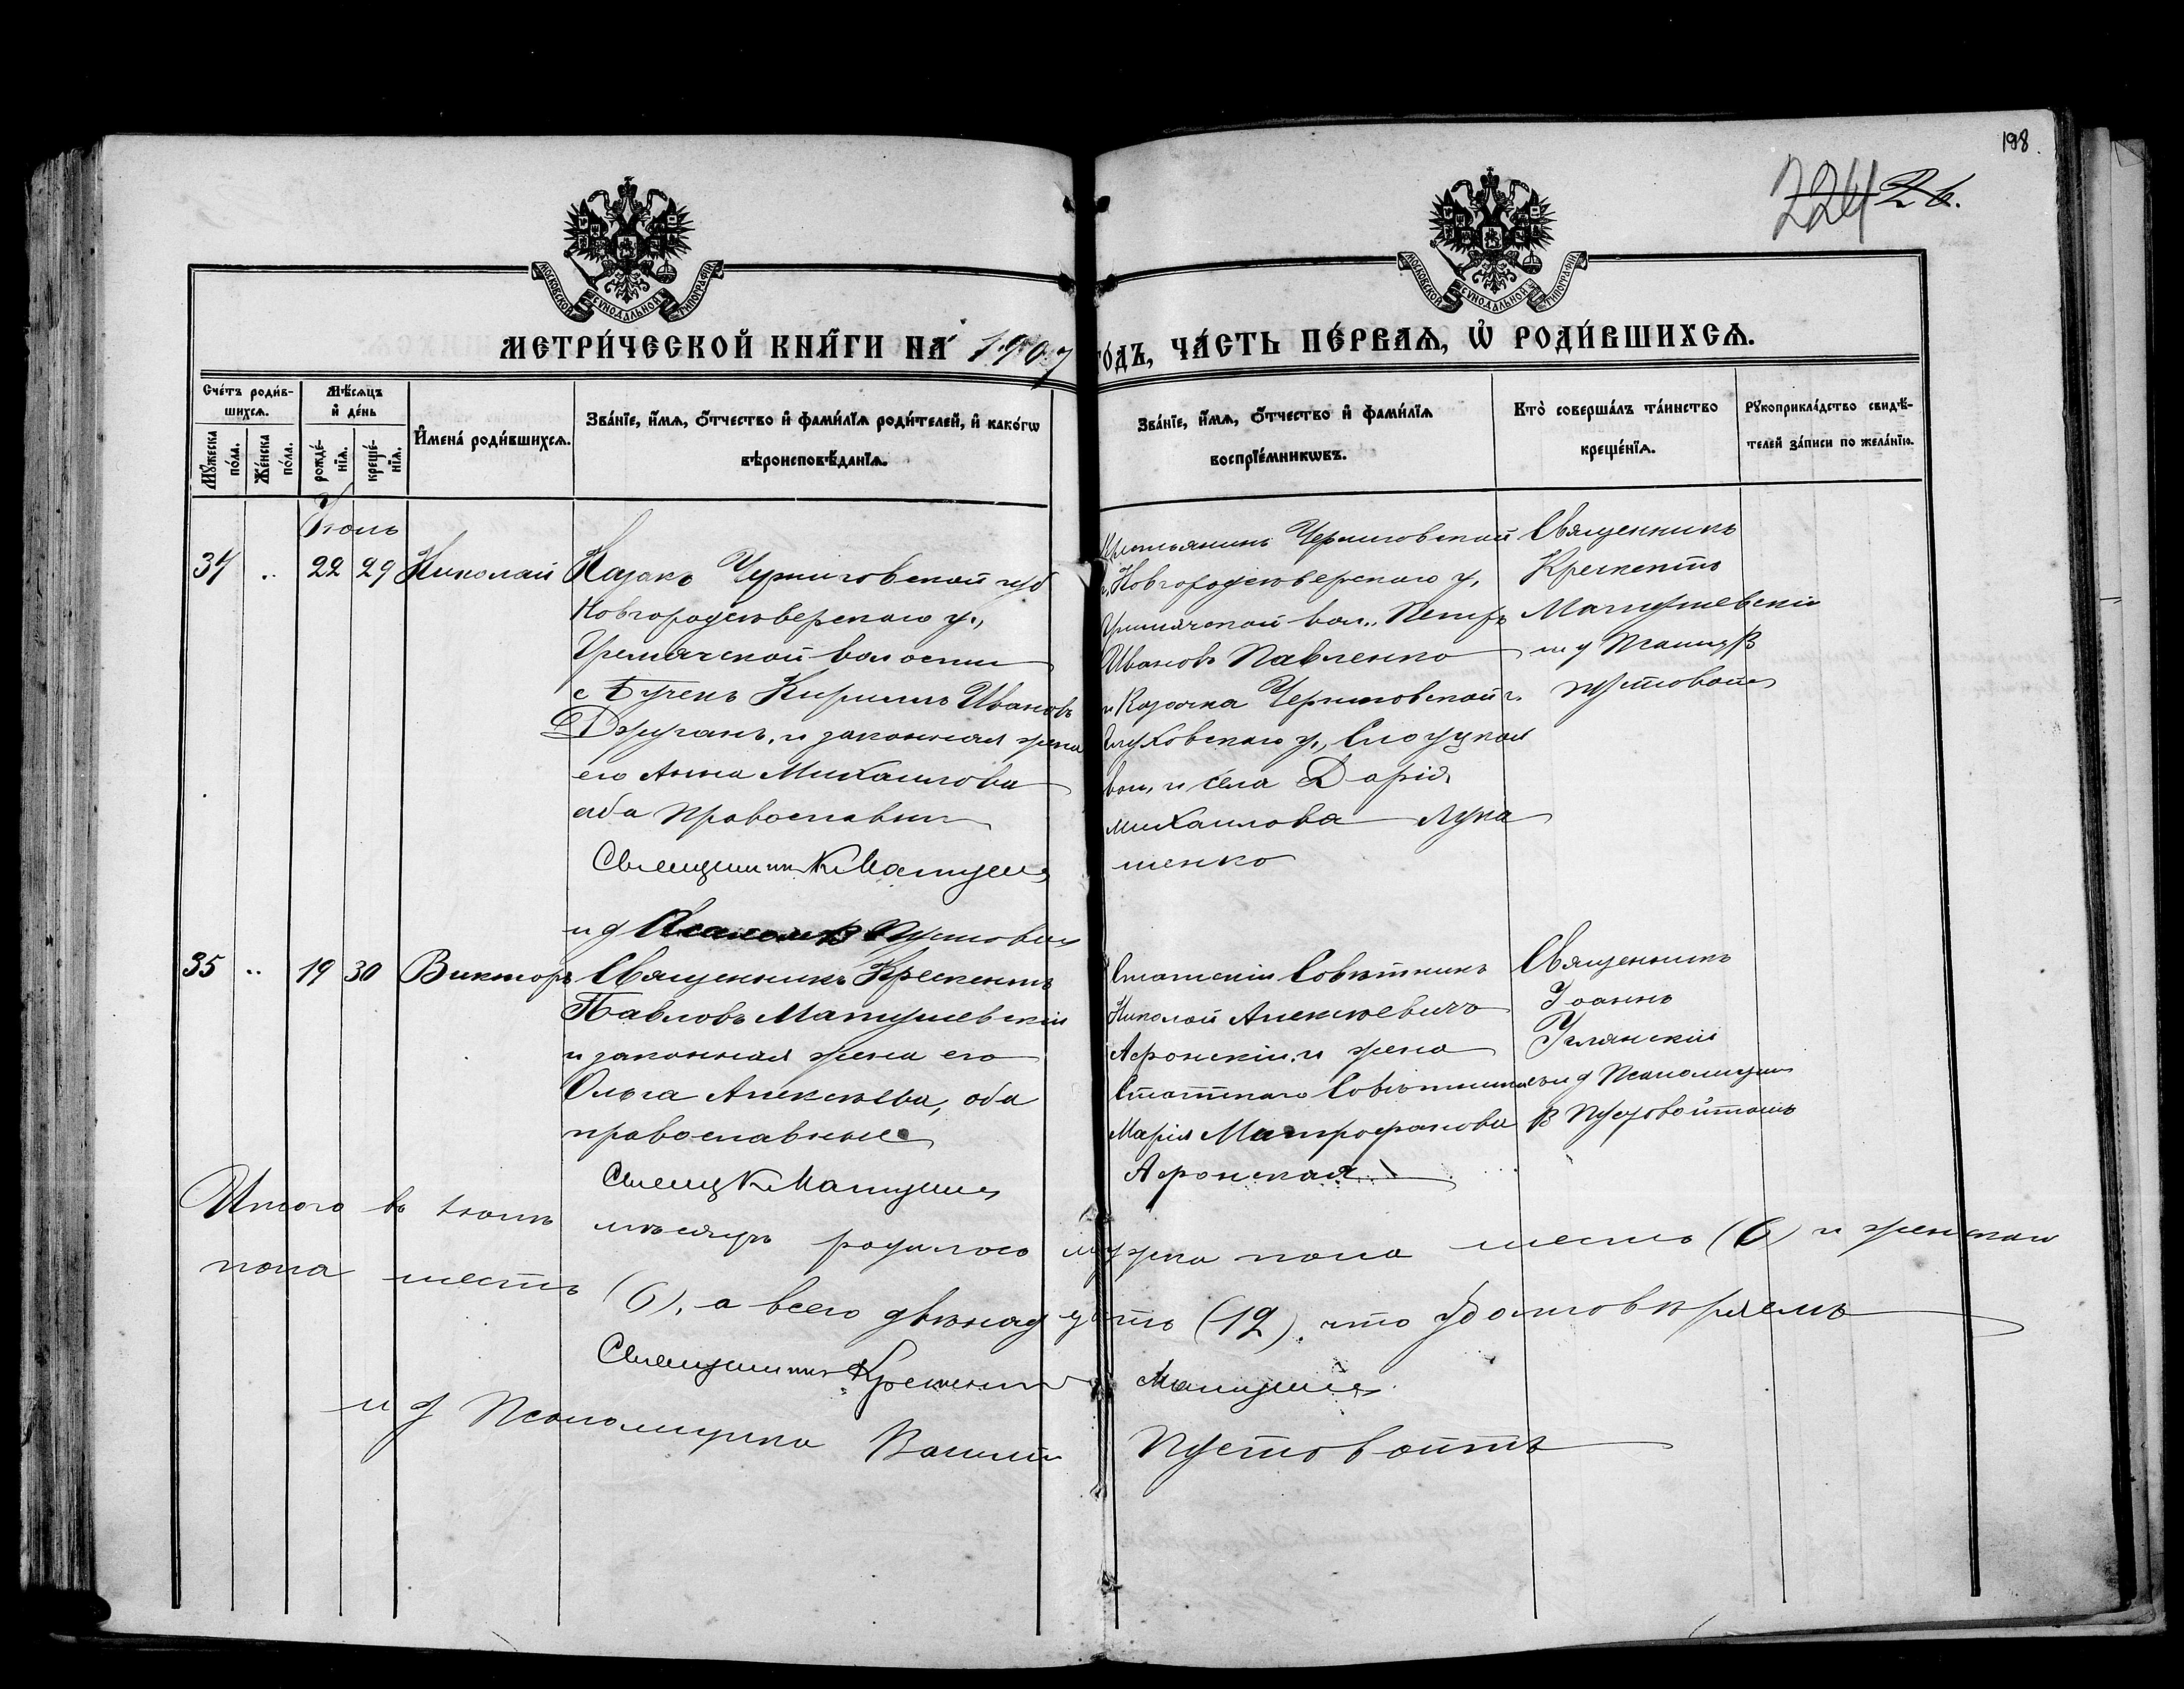 198.
224 26.
МОСКОВСКОЙ СУНОДАЛЬНОЙ ТИПОГРАФІИ
МОСКОВСКОЙ СУНОДАЛЬНОЙ ТИПОГРАФІИ
МЕТРИ́ЧЕСКОЙ КНИ́ГИ НА 1907 ГО́ДЪ, ЧА́СТЬ ПЕ́РВАѦ, Ѡ҆ РОДИ́ВШИХСѦ.
Сче́тъ роди́в-
шихсѧ.
Мꙋ́жеска по́ла.
Же́нска по́ла.
Мѣ́сѧцъ
и҆ де́нь
рожде́-
нїѧ.
креще́-
нїѧ.
И҆мена̀ роди́вшихсѧ.
Зва́нїе, и҆́мѧ, ѻ҆́тчество и҆ фами́лїѧ роди́телей, и҆ како́гѡ
вѣроисповѣ́данїѧ.
Зва́нїе, и҆́мѧ, ѻ҆́тчество и҆ фами́лїѧ
воспрїе́мникѡвъ.
Кто̀ соверша́лъ та́инство
креще́нїѧ.
Рꙋкоприкла́дство свидѣ́-
телей за́писи по жела́нїю.
Іюль
34 .. 22 29 Николай
Казакъ Черниговской губ
Новгородсѣверскаго у.,
Гремячской волости
Кириллъ Ивановъ
и законная жена
его Анна Михаилова
оба православные
Священникъ К Матушев
и д Псаломщ Пустовой
Крестьянинъ Черниговской
г. Новгородсѣверскаго у,
Гремячской вол., Петръ
Ивановъ Павленко
и Казачка Черниговской г.
Глуховскаго у.,
вол, и села Дарія
Михаилова Лука
шенко
Священникъ
Крескентъ
Матушевскій
и д Псаломщ В
Пустовойт
35 .. 19 30 Викторъ
Священникъ Крескентъ
Павловъ Матушевскій
и законная жена его
Ольга Алексѣева, оба
православные
Священ К Матушев
Статскій Совѣтникъ
Николай Алексѣевичъ
Афонскій и жена
Статскаго Совѣтника
Марія Митрофанова
Афонская
Священникъ
Іоаннъ
Углянскій
и д Псаломщик
В Пустовойтомъ
Итого въ Іюлѣ мѣсяцѣ родилось мужска пола шесть (6) и женскаго
пола шесть (6), а всего двѣнадцать (12), что удостовѣряемъ
Священникъ Крескентъ Матушев
и д Псаломщика Василій Пустовойтъ